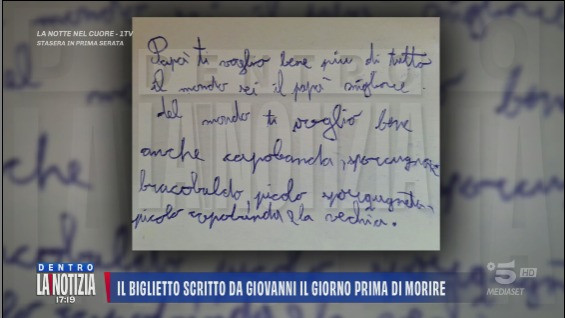 LA NOTTE NEL CUORE - 1TV
STASERA IN PRIMA SERATA
Papà ti voglio bene piu di tutto
il mondo sei il papà migliore
del mondo ti voglio bene
anche capobanda, sporcugnone
bracobaldo picolo
picolo capobanda e la vechia.
DENTRO
LA NOTIZIA
17:19
IL BIGLIETTO SCRITTO DA GIOVANNI IL GIORNO PRIMA DI MORIRE
5 HD
MEDIASET